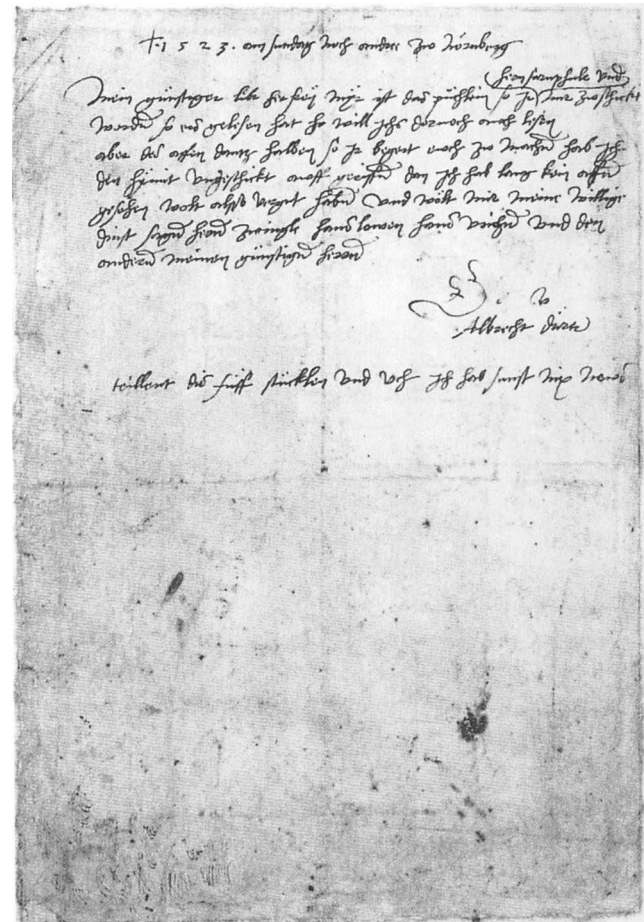 † 1523 am sundag noch andree zw nörnberg
Mein günstiger liber her frey mir ist das püchlein so jr hern farnphule vnd mir zwschickt
worden so ers gelesen hat so will jchs dornoch awch lesen
aber des affen dantz halben so jr begert ewch zw machen hab jch
den hymit vngeschickt awff gerissen dan jch hab lang kein affen
gesehen wolt also vergut haben vnd wölt mir meine willige
dinst sagen herrn zwingle hans lowen hans vrichen vnd den
anderen meinen günstigen herren
E. w
Albrecht dürer
teillent dis fünff stücklen vnd vch jch hab sunst nix news